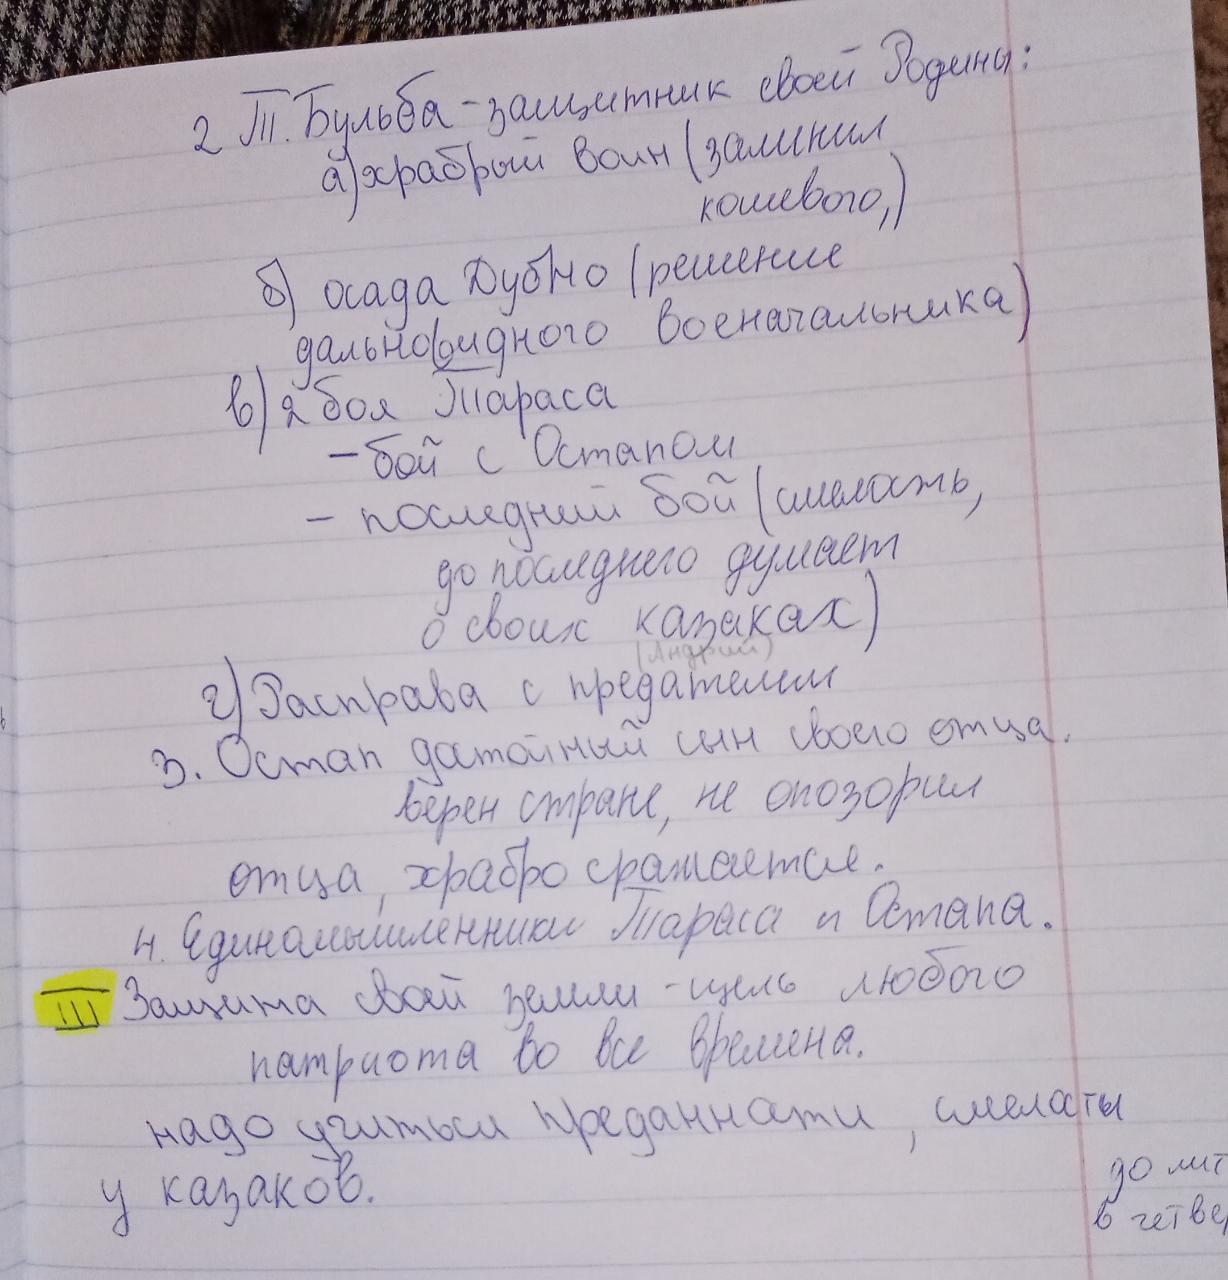 2 Т. Бульба - защитник своей Родины:
а) храбрый воин (заменил
кошевого,)
б) осада Дубно (решение
дальновидного военачальника)
в) 2 боя Тараса
- бой с Остапом
- последний бой (смелость,
до последнего думает
о своих казаках)
(Андрий)
г) Расправа с предателем
3. Остап достойный сын своего отца.
верен стране, не опозорил
отца, храбро сражается.
4. Единомышленники Тараса и Остапа.
III Защита своей земли - цель любого
патриота во все времена.
надо учиться преданности, смелости
у казаков.
до лит
в четвер